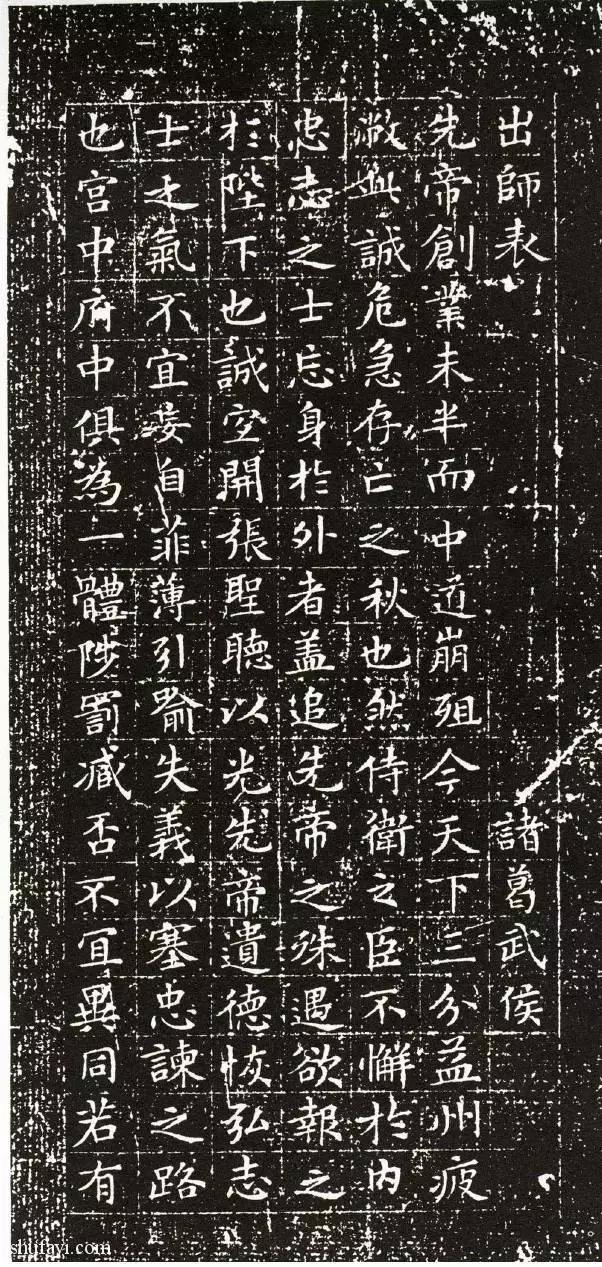 出師表 諸葛武侯
先帝創業未半而中道崩殂今天下三分益州疲
敝此誠危急存亡之秋也然侍衛之臣不懈於内
忠志之士忘身於外者盖追先帝之殊遇欲報之
於陛下也誠宜開張聖聽以光先帝遺德恢弘志
士之氣不宜妄自菲薄引喻失義以塞忠諫之路
也宫中府中俱為一體陟罰臧否不宜異同若有
shufayi.com